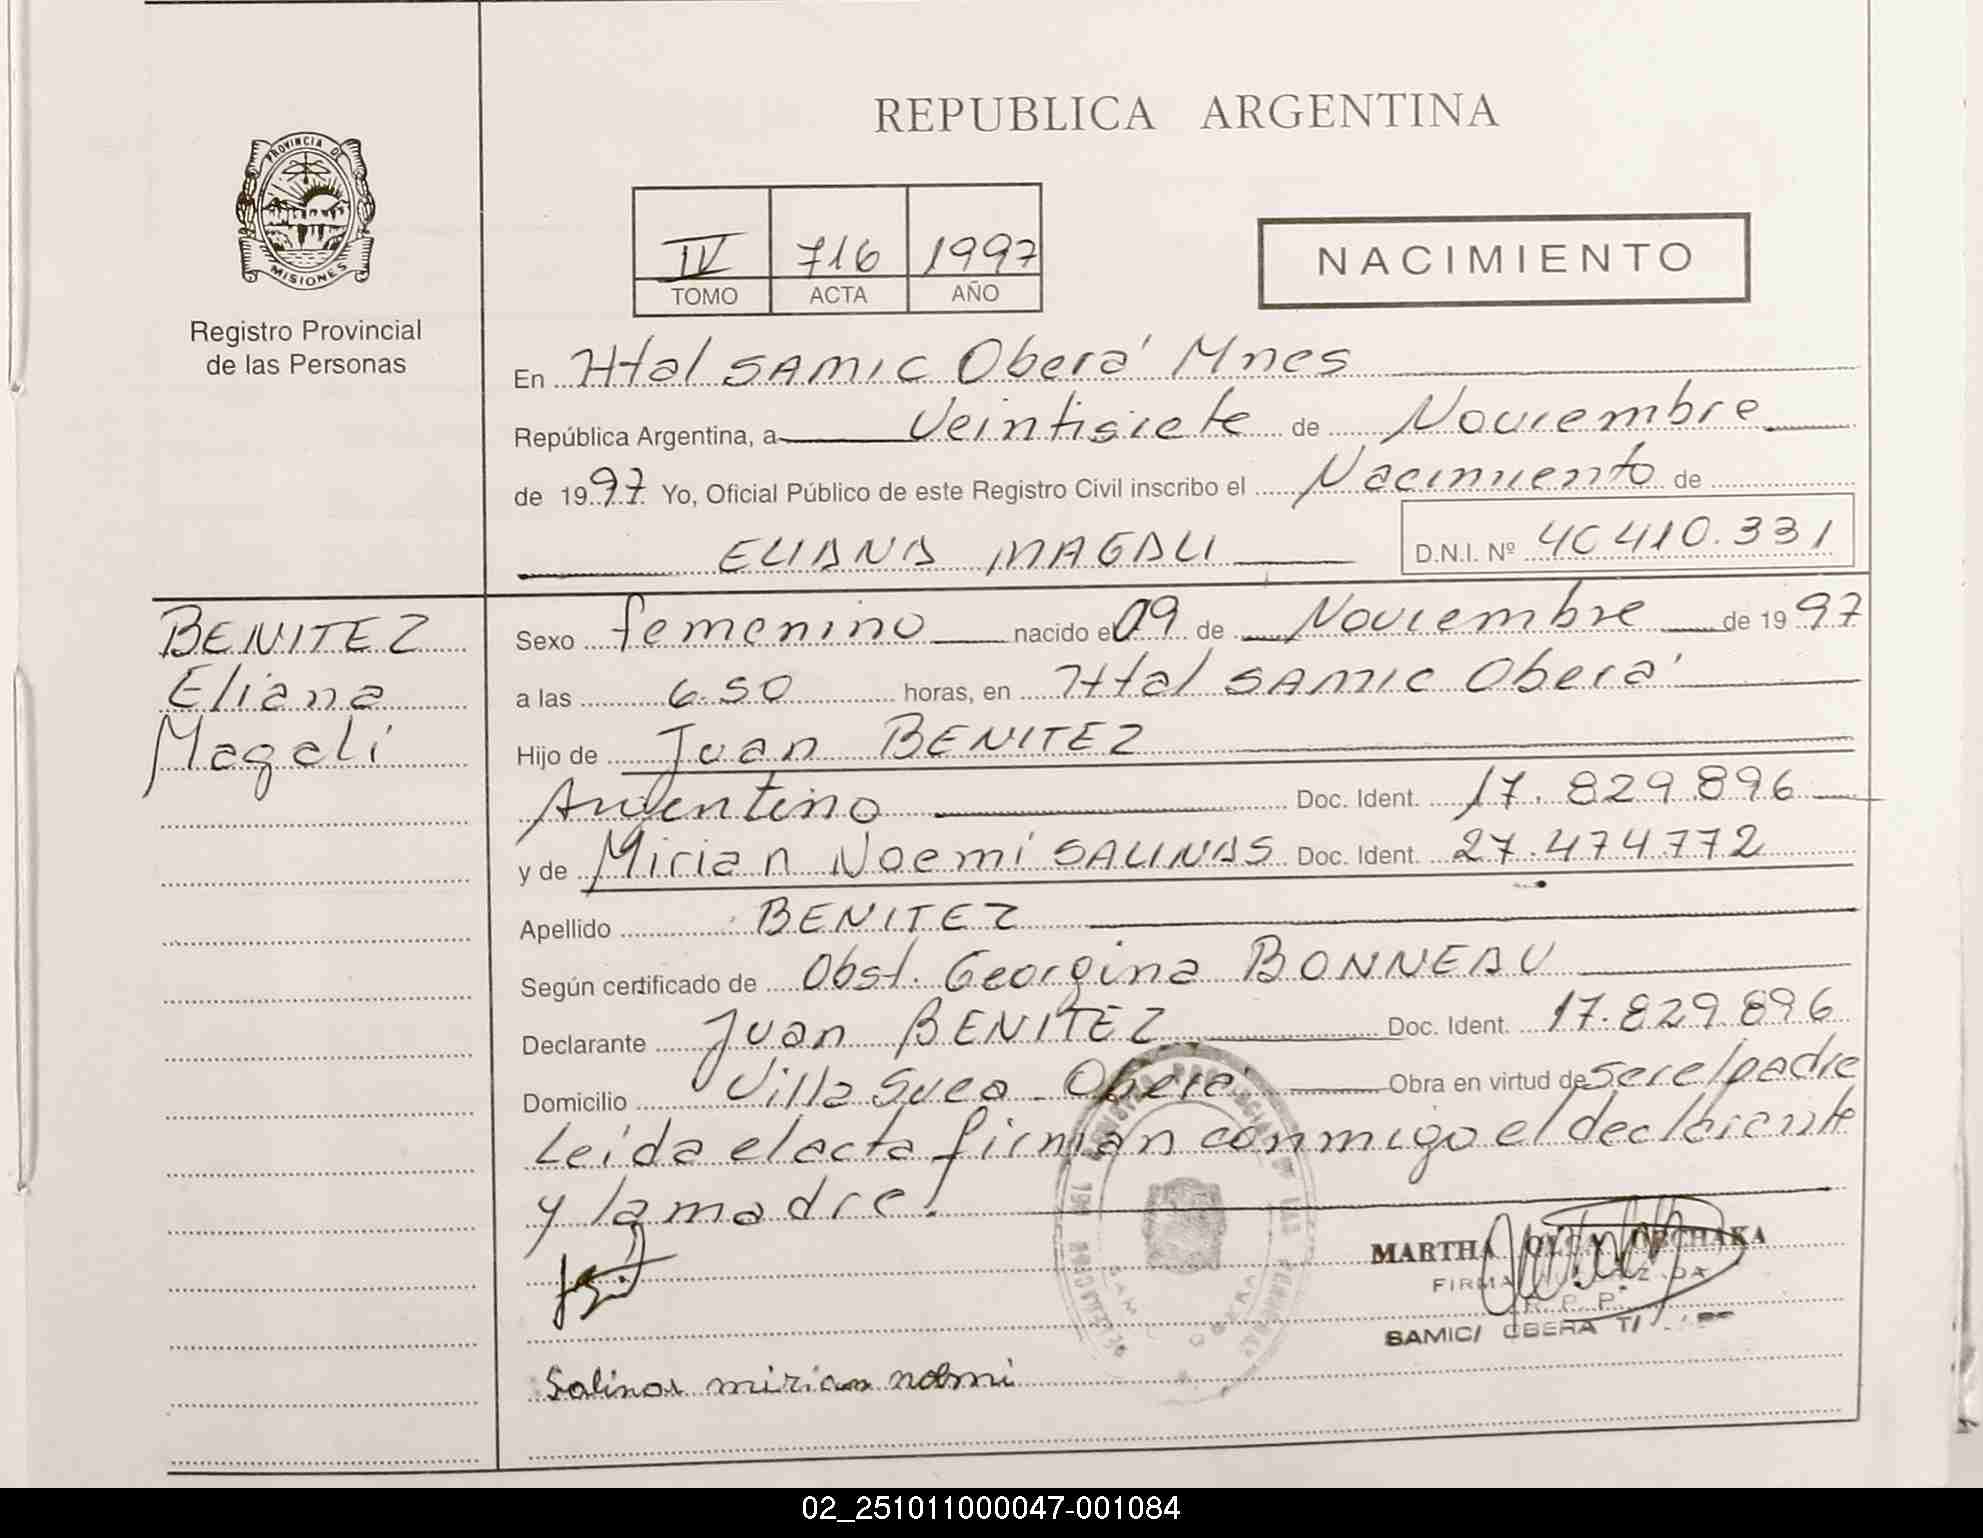 PROVINCIA DE
MISIONES
Registro Provincial
de las Personas
REPUBLICA ARGENTINA
IV 716 1997
TOMO ACTA AÑO
NACIMIENTO
En Htal SAMIC Oberá Mnes
República Argentina, a Veintisiete de Noviembre
de 1997 Yo, Oficial Público de este Registro Civil inscribo el Nacimiento de
ELIANA MAGALI D.N.I. Nº 40 410.331
BENITEZ
Eliana
Magalí
Sexo femenino nacido el 09 de Noviembre de 1997
a las 6.50 horas, en Htal SAMIC Oberá
Hijo de Juan BENITEZ
Argentino Doc. Ident. 17.829.896
y de Mirian Noemí SALINAS Doc. Ident. 27.474772
Apellido BENITEZ
Según certificado de Obst. Georgina BONNEAU
Declarante Juan BENITEZ Doc. Ident. 17.829.896
Domicilio Villa Svea - Oberá Obra en virtud de ser el padre
Leída el acta firman conmigo el declarante
y la madre.
MARTHA OLGA
FIRMA
R. P. P.
SAMIC/ OBERA
Salinas mirian noemi
02_251011000047-001084